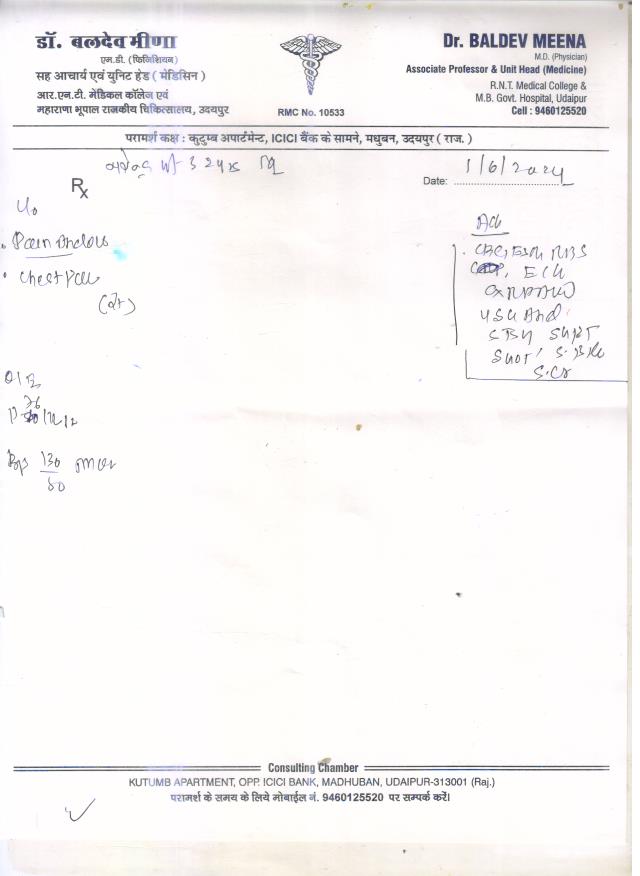 डॉ. बलदेव मीणा
एम.डी. (फिजिशियन)
सह आचार्य एवं युनिट हेड ( मेडिसिन )
आर.एन.टी. मेडिकल कॉलेज एवं
महाराणा भूपाल राजकीय चिकित्सालय, उदयपुर
RMC No. 10533
Dr. BALDEV MEENA
M.D. (Physician)
Associate Professor & Unit Head (Medicine)
R.N.T. Medical College &
M.B. Govt. Hospital, Udaipur
Cell : 9460125520
परामर्श कक्ष : कुटुम्ब अपार्टमेन्ट, ICICI बैंक के सामने, मधुबन, उदयपुर ( राज. )
Rx
Date: 1/6/2024
Pain
Chest
Adv
CBC, ESR, RBS
ECG
USG Abd
SGPT
SGOT, S. Bil
S. Cr
O/E
76
BP 130
80
Consulting Chamber
KUTUMB APARTMENT, OPP. ICICI BANK, MADHUBAN, UDAIPUR-313001 (Raj.)
परामर्श के समय के लिये मोबाईल नं. 9460125520 पर सम्पर्क करें।